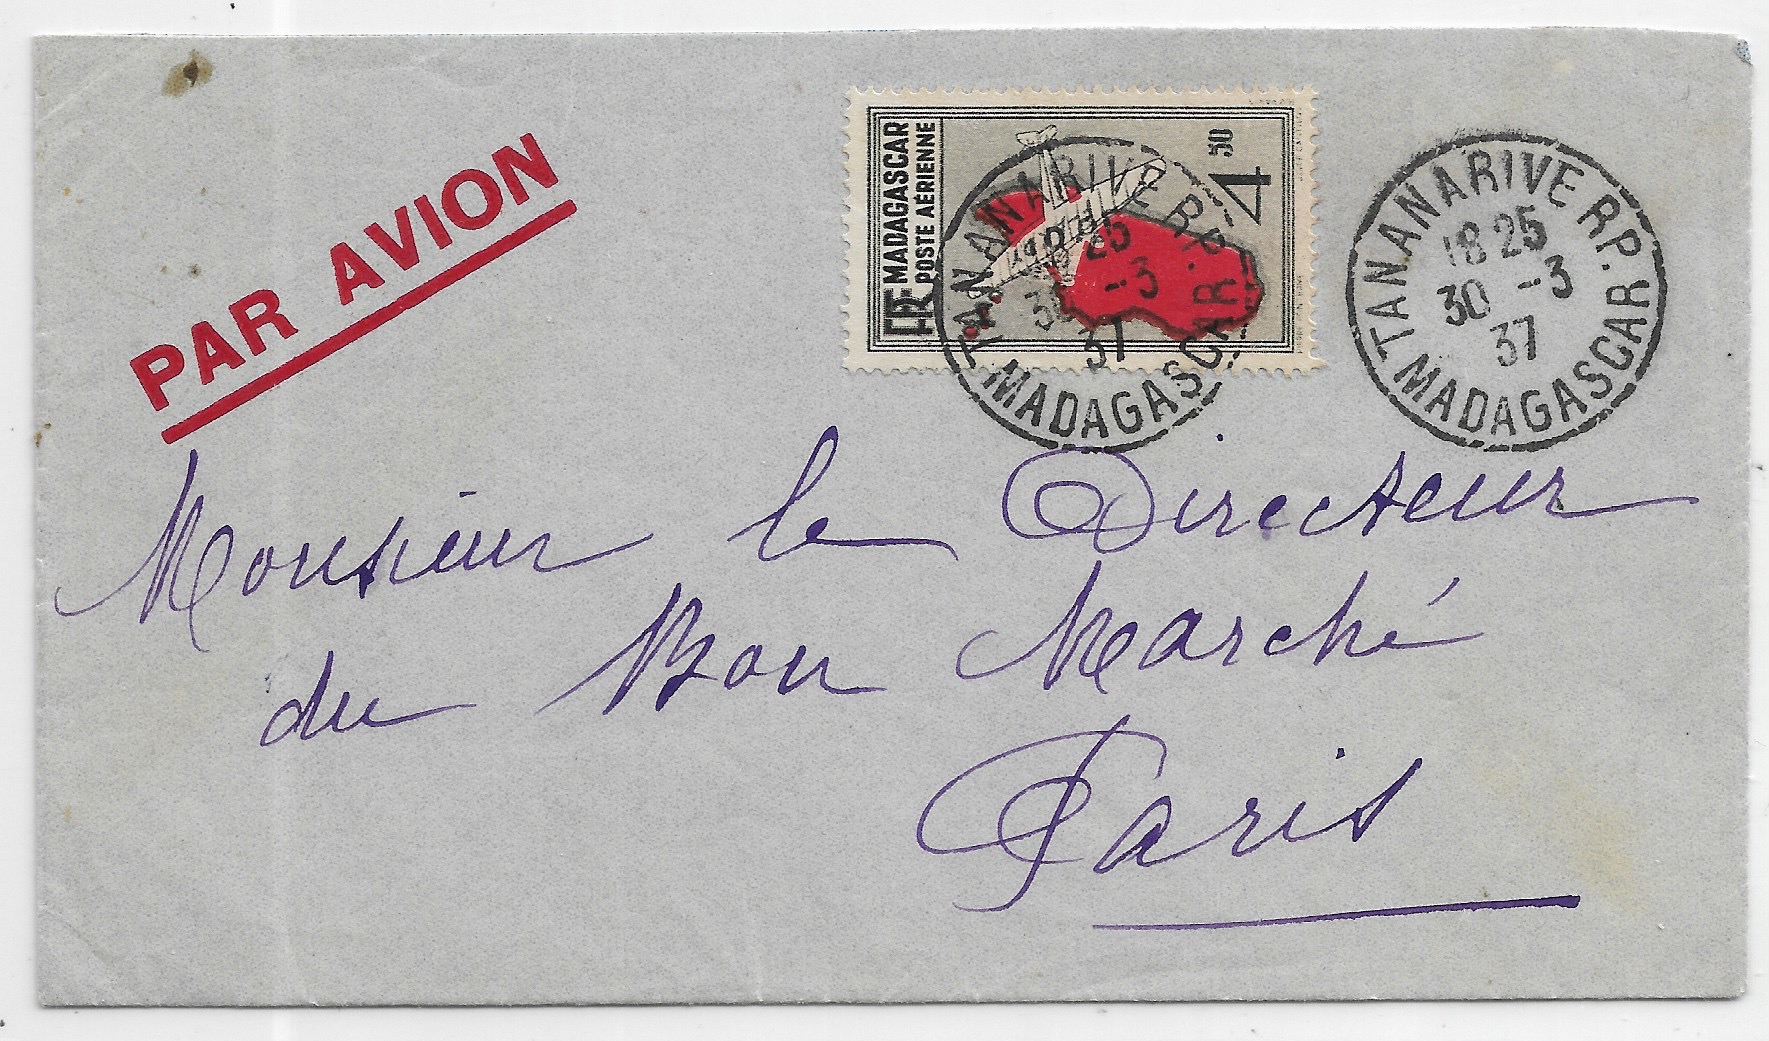 PAR AVION
RF
MADAGASCAR
POSTE AÉRIENNE
4 50
TANANARIVE R.P.
18 25
30 -3
37
MADAGASCAR
TANANARIVE RP.
18 25
30 -3
37
MADAGASCAR
Monsieur le Directeur
du Bon Marché
Paris